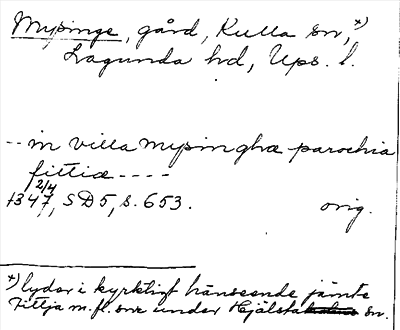 Mysinge, gård, Kulla sn,*)
Lagunda hd, Ups. l.
-- in villa mysinghæ parochia
fittiæ ----
1347 2/4, SD5, s. 653. orig.
*) lyder i kyrkligt hänseende jämte
Fittja m.fl. snr under Hjälsta sn.